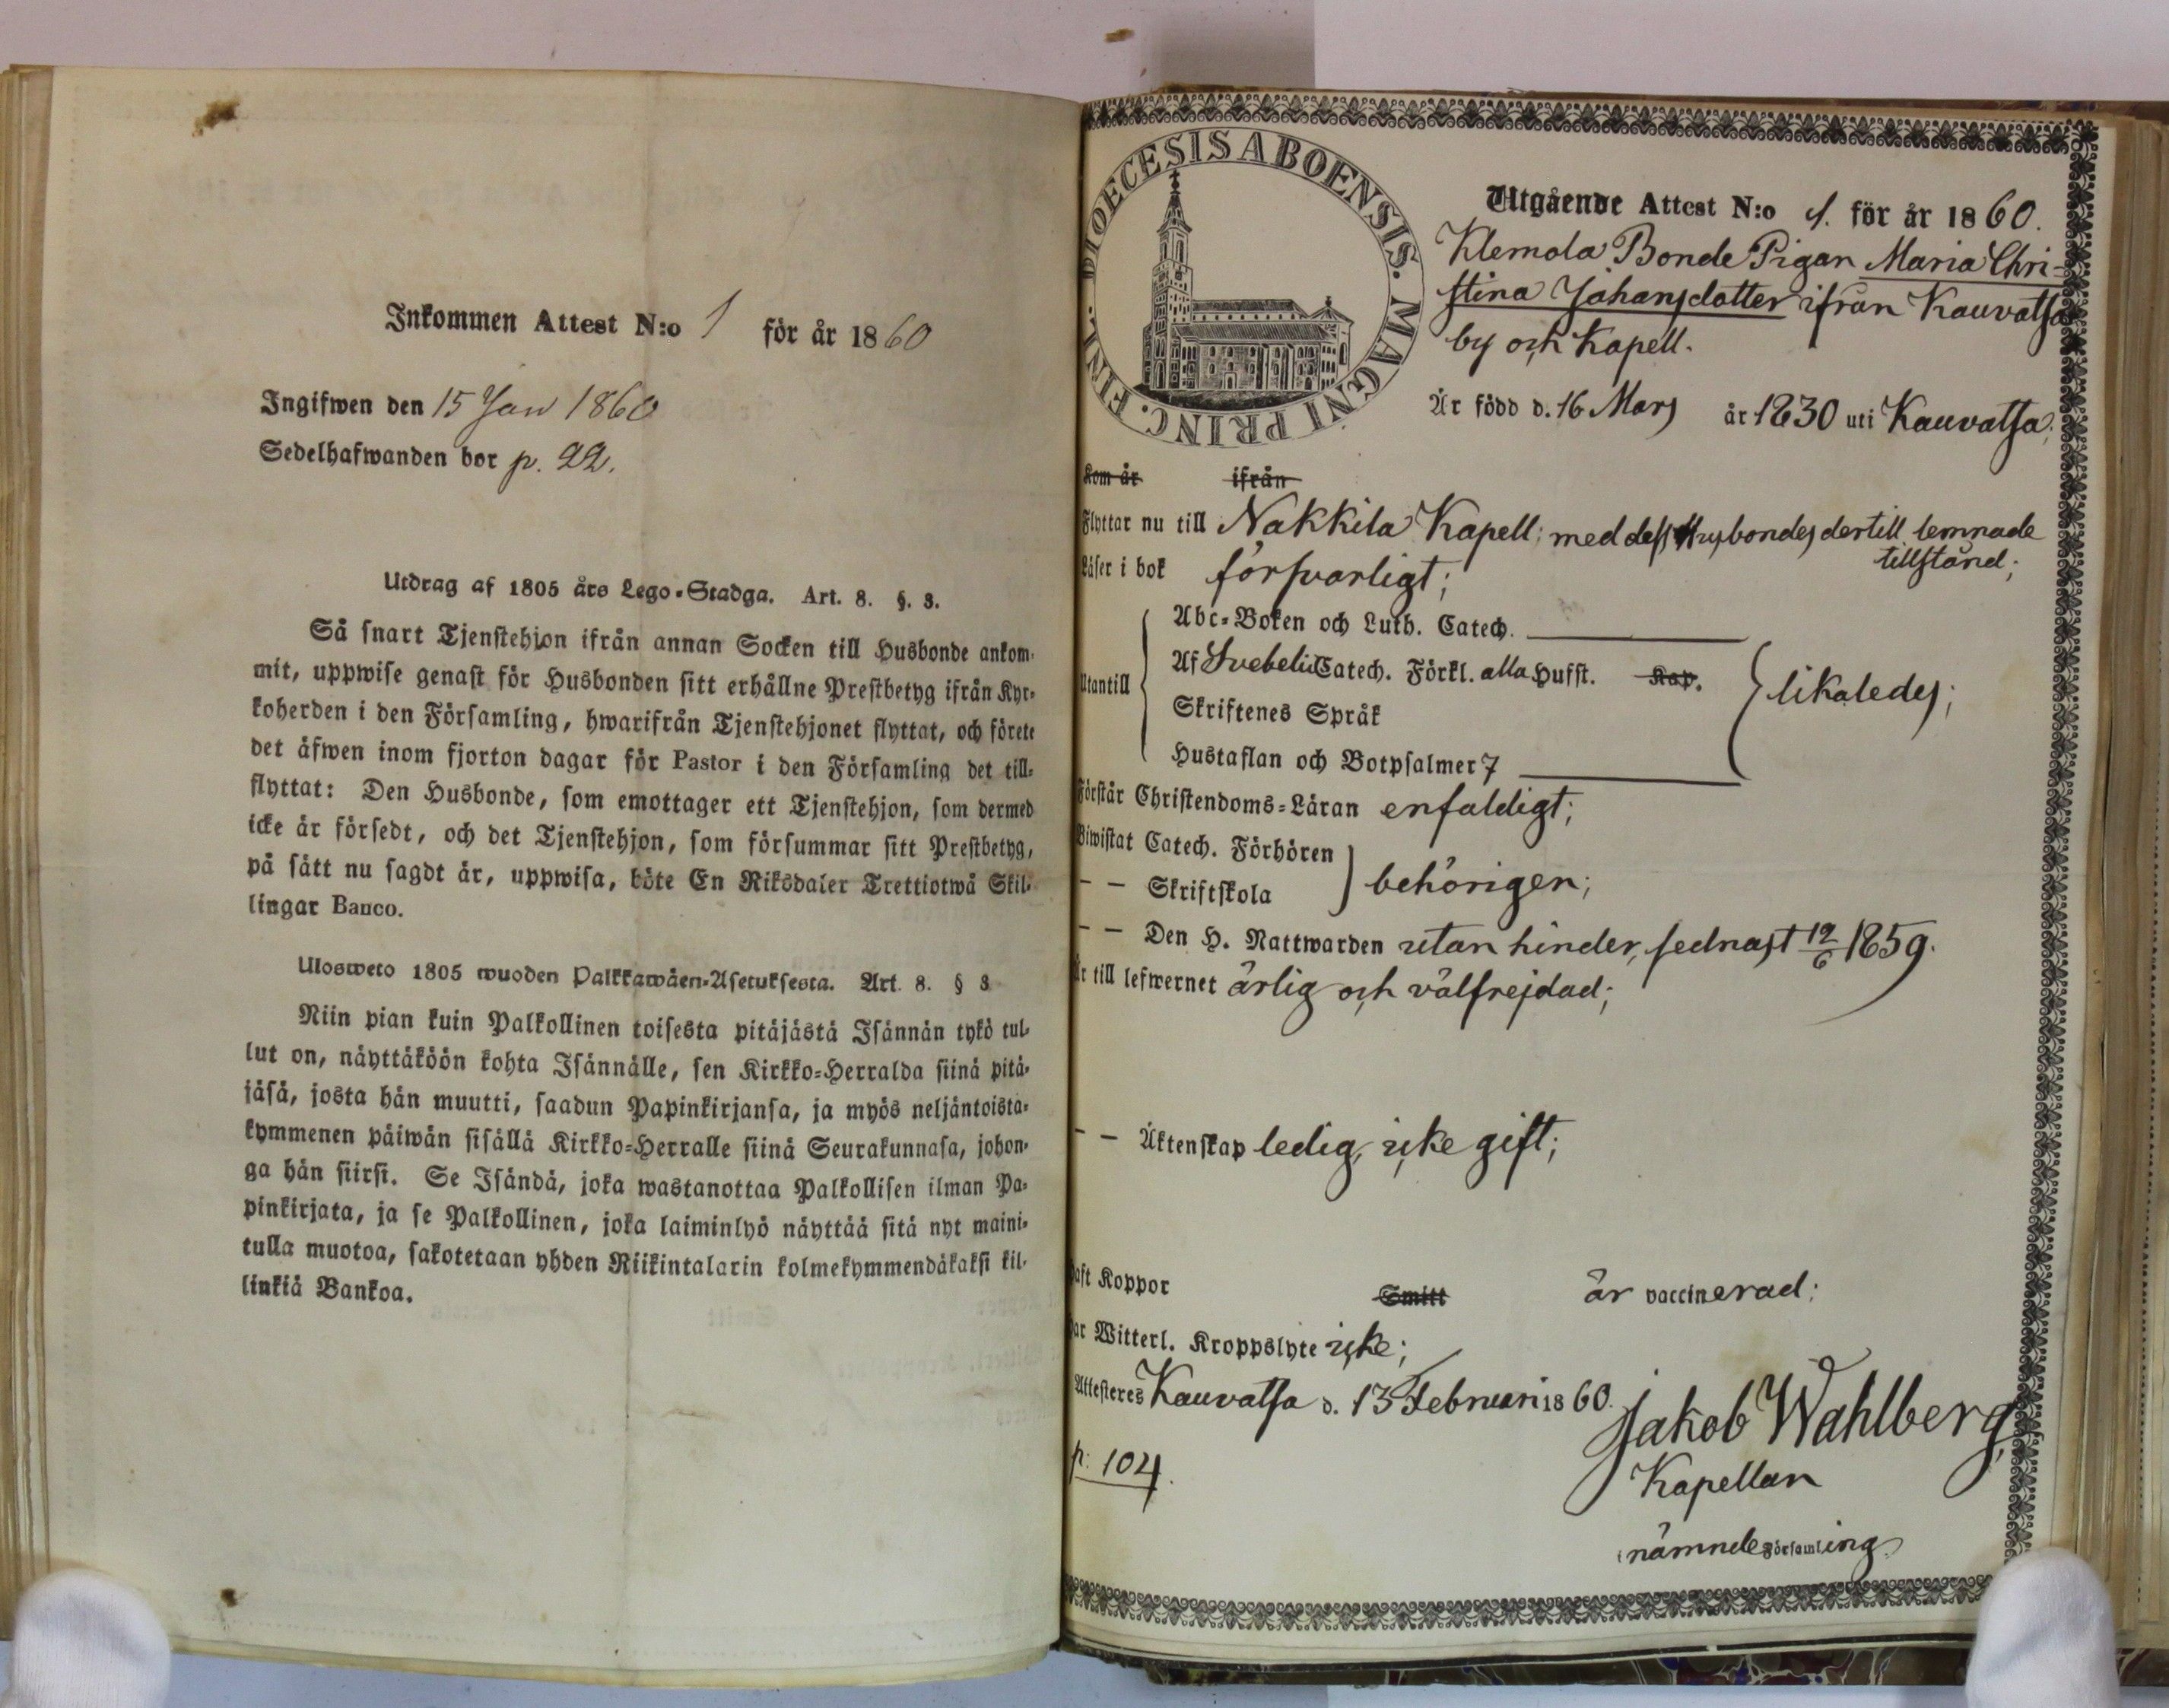 Inkommen Attest N:o 1 för år 1860
Ingifwen den 15 Jan 1860
Sedelhafwanden bor p. 22.
Utdrag af 1805 års Lego-Stadga. Art. 8. §. 3.
Så snart Tjenstehjon ifrån annan Socken till Husbonde ankom-
mit, uppwise genast för Husbonden sitt erhållne Prestbetyg ifrån Kyr-
koherden i den Församling, hwarifrån Tjenstehjonet flyttat, och förete
det äfwen inom fjorton dagar för Pastor i den Församling det till-
flyttat: Den Husbonde, som emottager ett Tjenstehjon, som dermed
icke är försedt, och det Tjenstehjon, som försummar sitt Prestbetyg,
på sätt nu sagdt är, uppwisa, böte En Riksdaler Trettiotwå Skil-
lingar Banco.
Ulosweto 1805 wuoden Palkkawäen-Asetuksesta. Art. 8. § 3
Niin pian kuin Palkollinen toisesta pitäjästä Isännän tykö tul-
lut on, näyttäköön kohta Isännälle, sen Kirkko-Herralda siinä pitä-
jäsä, josta hän muutti, saadun Papinkirjansa, ja myös neljäntoista-
kymmenen päiwän sisällä Kirkko-Herralle siinä Seurakunnasa, johon-
ga hän siirsi. Se Isändä, joka wastanottaa Palkollisen ilman Pa-
pinkirjata, ja se Palkollinen, joka laiminlyö näyttää sitä nyt maini-
tulla muotoa, sakotetaan yhden Riikintalarin kolmekymmendäkaksi kil-
linkiä Bankoa.
DIOECESIS ABOENSIS. MAGNI PRINC. FINL.
Utgående Attest N:o 1. för år 1860.
Klemola Bonde Pigan Maria Chri-
stina Johansdotter ifrån Kauvatsa
by och Kapell.
Är född d. 16 Mars år 1830 uti Kauvatsa;
Kom år ifrån
Flyttar nu till Nakkila Kapell; med dess Husbondes dertill lemnade
tillstånd;
Läser i bok försvarligt;
Abc-Boken och Luth. Catech.
Utantill
Af Svebelii Catech. Förkl. alla Hufst. Kap.
likaledes;
Skriftenes Språk
Hustaflan och Botpsalmer 7
Förstår Christendoms-Läran enfaldigt;
Biwistat Catech. Förhören
behörigen;
— — Skriftskola
— — Den H. Nattwarden utan hinder, sednast 12/6 1859.
Är till lefwernet ärlig och välfrejdad;
— — Äktenskap ledig, icke gift;
Haft Koppor Smitt är vaccinerad;
Har Witterl. Kroppslyte icke;
Attesteres Kauvatsa d. 13 Februari 1860.
Jakob Wahlberg,
p: 104.
Kapellan
i nämnde Församling.